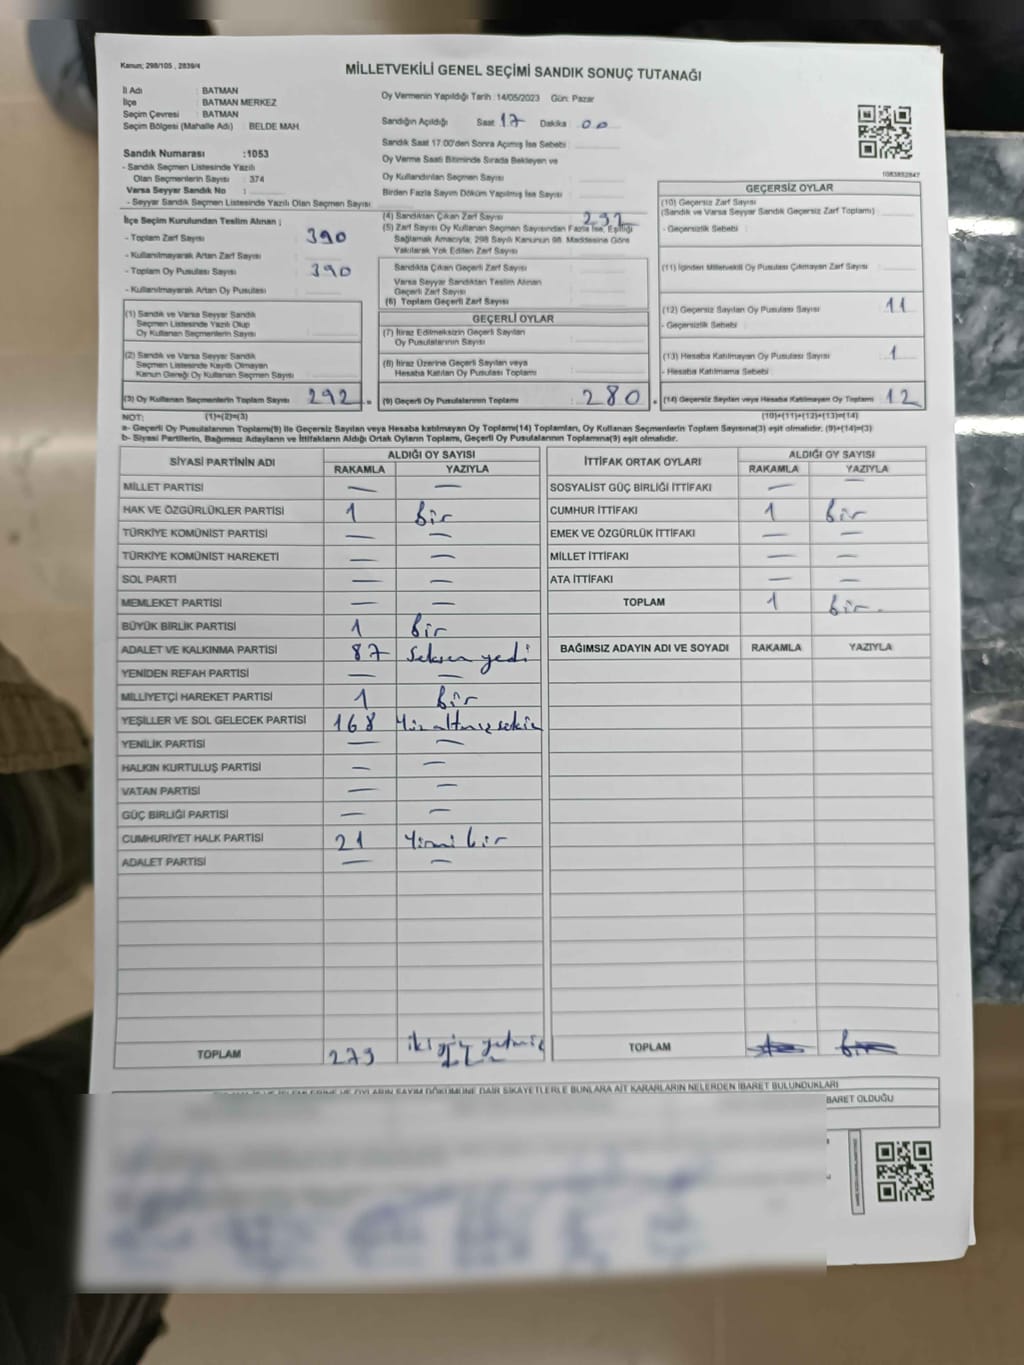 Kanun; 298/105 , 2839/4
MİLLETVEKİLİ GENEL SEÇİMİ SANDIK SONUÇ TUTANAĞI
İl Adı : BATMAN
İlçe : BATMAN MERKEZ
Seçim Çevresi : BATMAN
Seçim Bölgesi (Mahalle Adı) : BELDE MAH.
Oy Vermenin Yapıldığı Tarih : 14/05/2023 Gün: Pazar
Sandığın Açıldığı Saat 17 Dakika : 00
Sandık Saat 17:00'den Sonra Açımış İse Sebebi :
Oy Verme Saati Bitiminde Sırada Bekleyen ve
Oy Kullandırılan Seçmen Sayısı :
Birden Fazla Sayım Döküm Yapılmış İse Sayısı :
Sandık Numarası :1053
- Sandık Seçmen Listesinde Yazılı
Olan Seçmenlerin Sayısı : 374
Varsa Seyyar Sandık No :
- Seyyar Sandık Seçmen Listesinde Yazılı Olan Seçmen Sayısı :
1083852847
İlçe Seçim Kurulundan Teslim Alınan ;
- Toplam Zarf Sayısı : 390
- Kullanılmayarak Artan Zarf Sayısı :
- Toplam Oy Pusulası Sayısı : 390
- Kullanılmayarak Artan Oy Pusulası :
(1) Sandık ve Varsa Seyyar Sandık
Seçmen Listesinde Yazılı Olup
Oy Kullanan Seçmenlerin Sayısı :
(2) Sandık ve Varsa Seyyar Sandık
Seçmen Listesinde Kayıtlı Olmayan
Kanun Gereği Oy Kullanan Seçmen Sayısı :
(3) Oy Kullanan Seçmenlerin Toplam Sayısı : 292
(4) Sandıktan Çıkan Zarf Sayısı : 292
(5) Zarf Sayısı Oy Kullanan Seçmen Sayısından Fazla İse, Eşitliği
Sağlamak Amacıyla, 298 Sayılı Kanunun 98. Maddesine Göre
Yakılarak Yok Edilen Zarf Sayısı :
Sandıkta Çıkan Geçerli Zarf Sayısı :
Varsa Seyyar Sandıktan Teslim Alınan
Geçerli Zarf Sayısı :
(6) Toplam Geçerli Zarf Sayısı :
GEÇERLİ OYLAR
(7) İtiraz Edilmeksizin Geçerli Sayılan
Oy Pusulalarının Sayısı :
(8) İtiraz Üzerine Geçerli Sayılan veya
Hesaba Katılan Oy Pusulası Toplamı :
(9) Geçerli Oy Pusulalarının Toplamı : 280
GEÇERSİZ OYLAR
(10) Geçersiz Zarf Sayısı
(Sandık ve Varsa Seyyar Sandık Geçersiz Zarf Toplamı) :
- Geçersizlik Sebebi :
(11) İçinden Milletvekili Oy Pusulası Çıkmayan Zarf Sayısı :
(12) Geçersiz Sayılan Oy Pusulası Sayısı : 11
- Geçersizlik Sebebi :
(13) Hesaba Katılmayan Oy Pusulası Sayısı : 1
- Hesaba Katılmama Sebebi :
(14) Geçersiz Sayılan veya Hesaba Katılmayan Oy Toplamı : 12
NOT: (1)+(2)=(3) (10)+(11)+(12)+(13)=(14)
a- Geçerli Oy Pusulalarının Toplamı(9) ile Geçersiz Sayılan veya Hesaba katılmayan Oy Toplamı(14) Toplamları, Oy Kullanan Seçmenlerin Toplam Sayısına(3) eşit olmalıdır. (9)+(14)=(3)
b- Siyasi Partilerin, Bağımsız Adayların ve İttifakların Aldığı Ortak Oyların Toplamı, Geçerli Oy Pusulalarının Toplamına(9) eşit olmalıdır.
SİYASİ PARTİNİN ADI ALDIĞI OY SAYISI
RAKAMLA YAZIYLA
MİLLET PARTİSİ — —
HAK VE ÖZGÜRLÜKLER PARTİSİ 1 bir
TÜRKİYE KOMÜNİST PARTİSİ — —
TÜRKİYE KOMÜNİST HAREKETİ — —
SOL PARTİ — —
MEMLEKET PARTİSİ — —
BÜYÜK BİRLİK PARTİSİ 1 bir
ADALET VE KALKINMA PARTİSİ 87 seksen yedi
YENİDEN REFAH PARTİSİ — —
MİLLİYETÇİ HAREKET PARTİSİ 1 bir
YEŞİLLER VE SOL GELECEK PARTİSİ 168 Yüz altmış sekiz
YENİLİK PARTİSİ — —
HALKIN KURTULUŞ PARTİSİ — —
VATAN PARTİSİ — —
GÜÇ BİRLİĞİ PARTİSİ — —
CUMHURİYET HALK PARTİSİ 21 Yirmi bir
ADALET PARTİSİ — —
TOPLAM 279 iki yüz yetmiş
İTTİFAK ORTAK OYLARI ALDIĞI OY SAYISI
RAKAMLA YAZIYLA
SOSYALİST GÜÇ BİRLİĞİ İTTİFAKI — —
CUMHUR İTTİFAKI 1 bir
EMEK VE ÖZGÜRLÜK İTTİFAKI — —
MİLLET İTTİFAKI — —
ATA İTTİFAKI — —
TOPLAM 1 bir
BAĞIMSIZ ADAYIN ADI VE SOYADI RAKAMLA YAZIYLA
TOPLAM
OYLARIN SAYIM DÖKÜMÜNE DAİR ŞİKAYETLERLE BUNLARA AİT KARARLARIN NELERDEN İBARET BULUNDUKLARI
BARET OLDUĞU